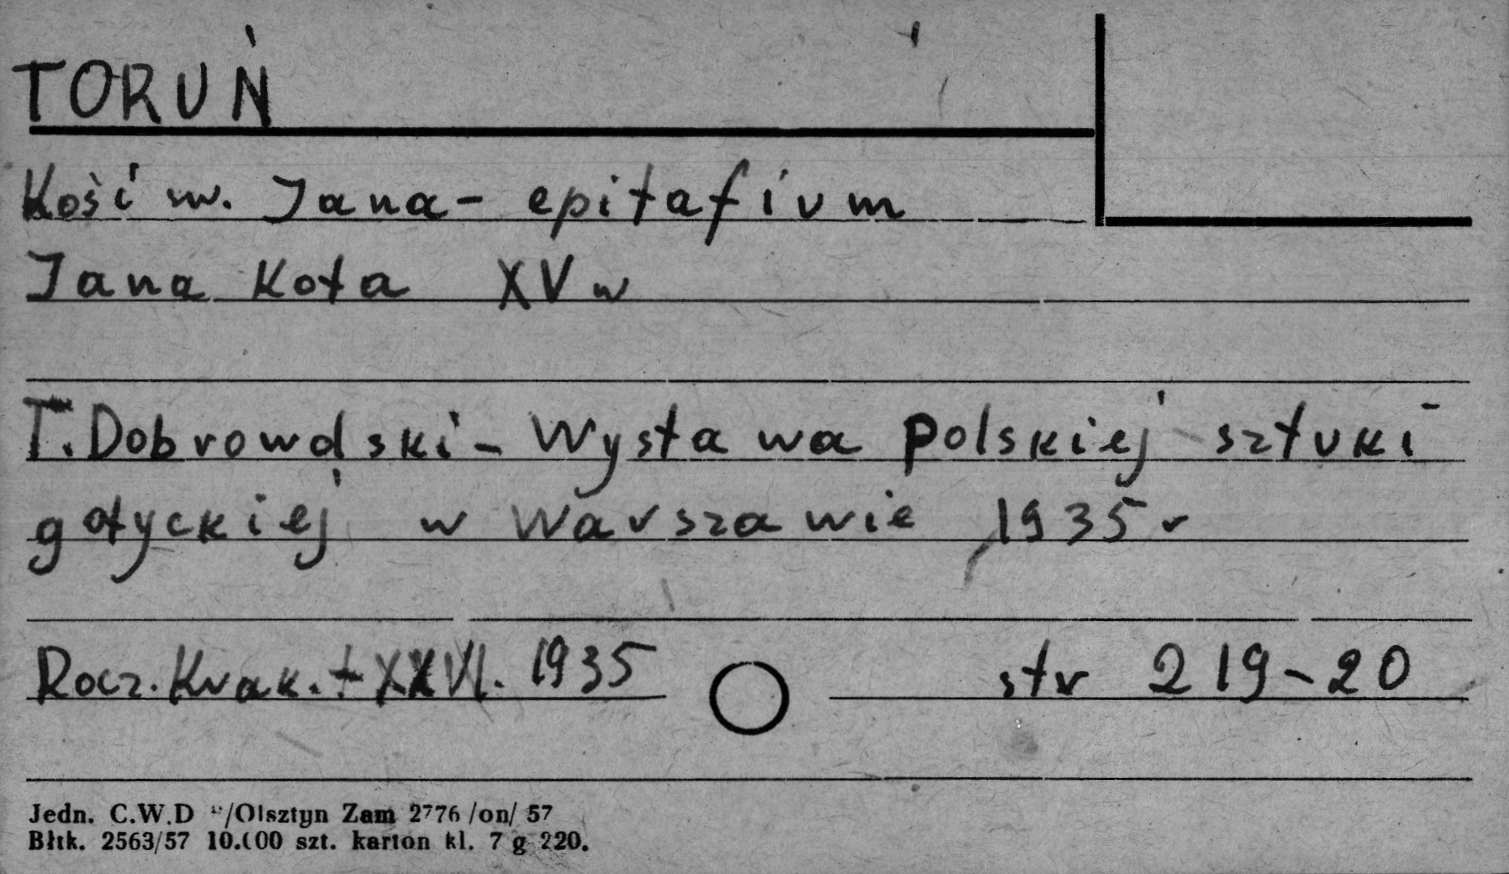 TORUŃ
Kość św. Jana - epitafium
Jana Kota XV w
T. Dobrowolski - Wystawa Polskiej sztuki
gotyckiej w Warszawie 1935 r
Rocz. Krak. t XXVI. 1935 str 219-20
Jedn. C.W.D /Olsztyn Zam 2776 /on/ 57
Błtk. 2563/57 10.000 szt. karton kl. 7 g 220.